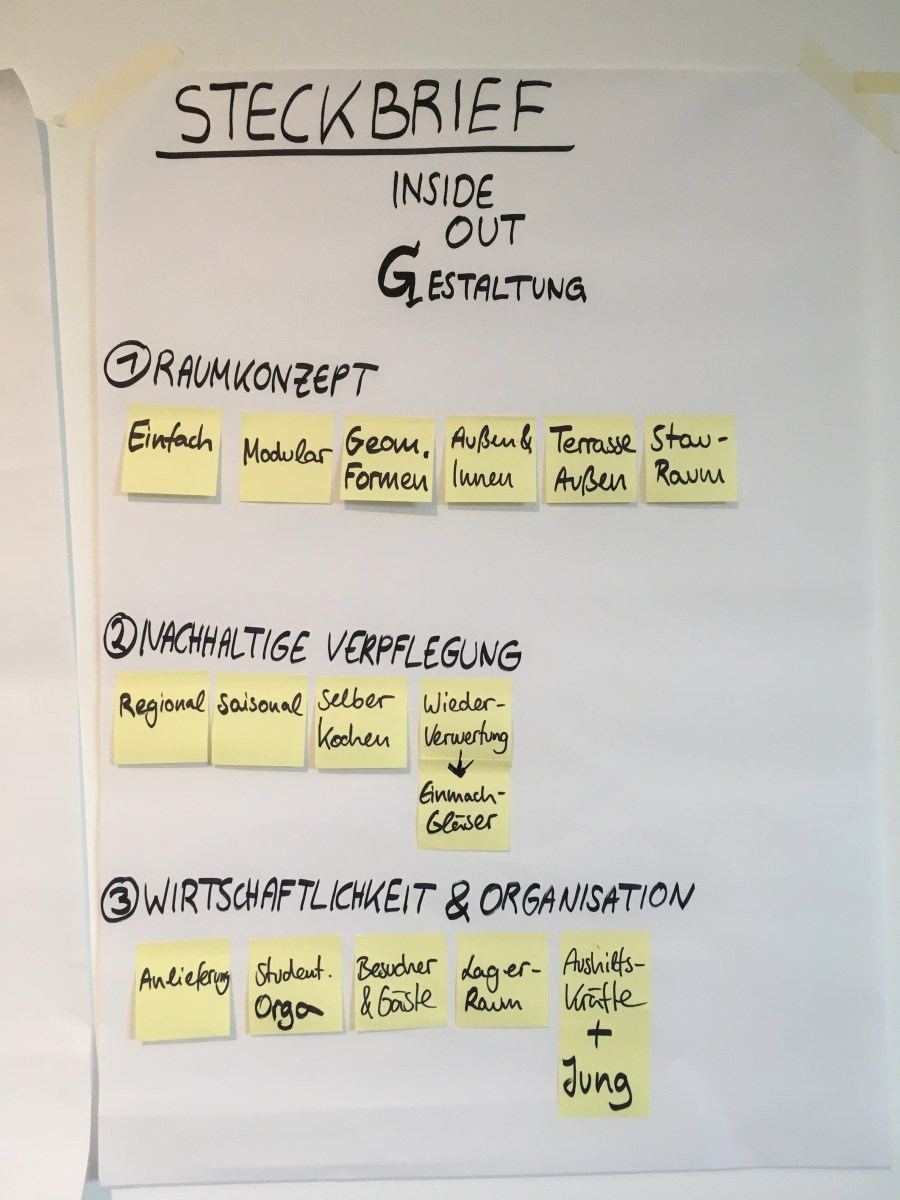 STECKBRIEF
INSIDE
OUT
GESTALTUNG
① RAUMKONZEPT
Einfach
Modular
Geom.
Formen
Außen &
Innen
Terrasse
Außen
Stau-
Raum
② NACHHALTIGE VERPFLEGUNG
Regional
Saisonal
Selber
Kochen
Wieder-
Verwertung
↓
Einmach-
Gläser
③ WIRTSCHAFTLICHKEIT & ORGANISATION
Anlieferung
Student.
Orga
Besucher
& Gäste
Lager-
Raum
Aushilfs-
Kräfte
+
Jung